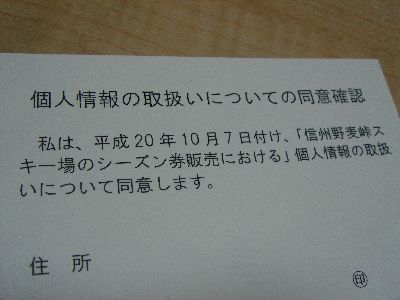 個人情報の取扱いについての同意確認
私は、平成20年10月7日付け、「信州野麦峠ス
キー場のシーズン券販売における」個人情報の取扱
いについて同意します。
住　所
㊞